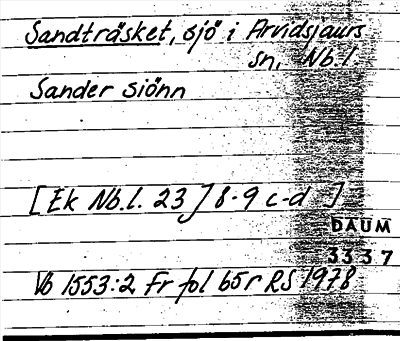 Sandträsket, sjö i Arvidsjaurs
sn, Nb.l.
Sander siönn
[Ek Nb.l. 23] 8-9 c-d ]
DAUM
3337
Vb 1553:2 Fr fol 65r RS 1978